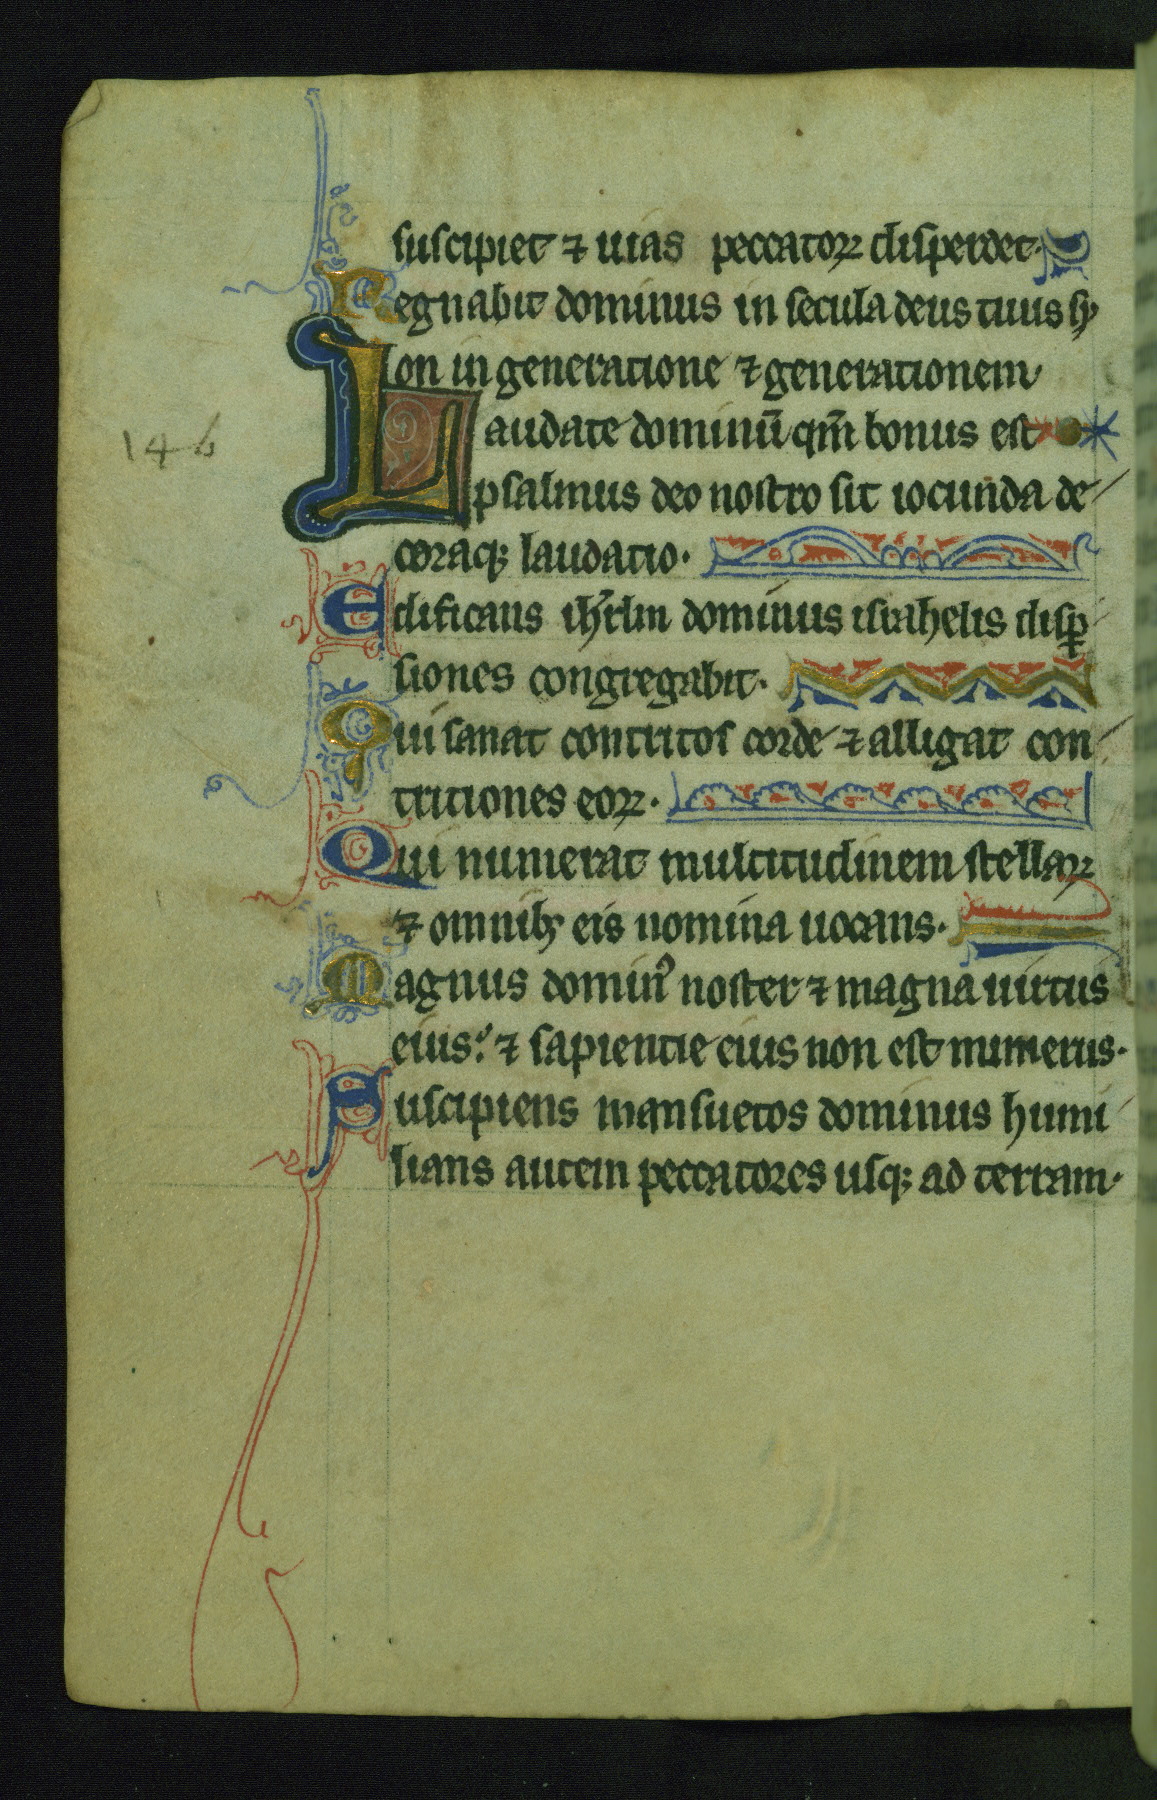 suscipiet ⁊ uias peccatoꝝ disperdet·
Regnabit dominus in secula deus tuus sy
on in generatione ⁊ generationem
Laudate dominū qm̄ bonus est
146
psalmus deo nostro sit iocunda de
coraqꝫ laudatio·
Edificans ihr̄lm dominus israhelis disꝑ
siones congregabit·
Qui sanat contritos corde ⁊ alligat con
tritiones eoꝝ·
Qui numerat multitudinem stellaꝝ
⁊ omnibꝫ eis nomina uocans·
Magnus dominꝰ noster ⁊ magna uirtus
eius: ⁊ sapientie eius non est numerus·
Suscipiens mansuetos dominus humi
lians autem peccatores usqꝫ ad terram·